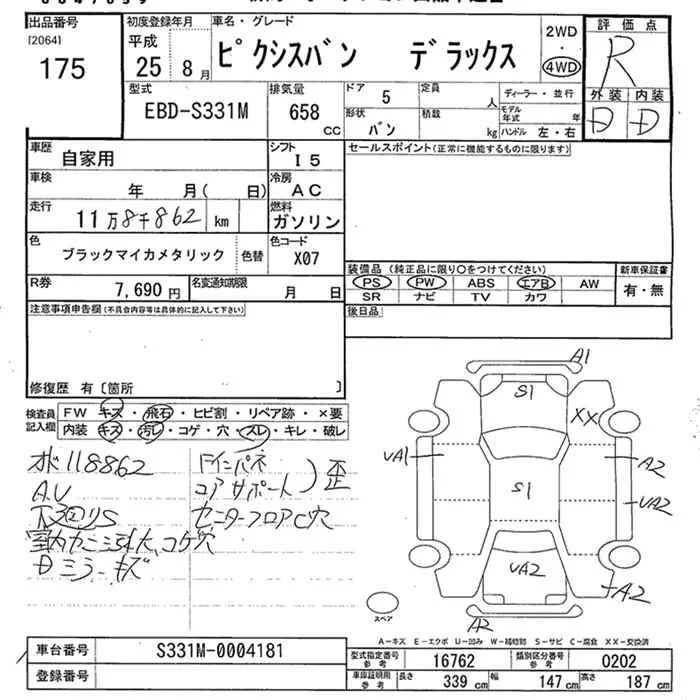 出品番号
[2064]
175
初度登録年月
平成
25 8月
車名・グレード
ピクシスバン デラックス
2WD
・
4WD
評価点
R
外装 内装
D D
型式
EBD-S331M
排気量
658
CC
ドア 5
定員 人
形状 バン
積載 kg
ディーラー・並行
モデル年式 年
ハンドル 左・右
車歴 自家用
シフト I5
車検 年 月( 日)
冷房 AC
走行 11万8千862 km
燃料 ガソリン
色 ブラックマイカメタリック 色替
色コード X07
R券 7,690円
名変通知期限 月 日
セールスポイント(正常に機能するものに限ります)
装備品(純正品に限り○をつけてください)
PS PW ABS エアB AW
SR ナビ TV カワ
新車保証書
有・無
後日品
注意事項申告欄(不具合内容等は具体的に記入して下さい)
修復歴 有〔箇所 〕
検査員記入欄
FW キズ・飛石・ヒビ割・リペア跡・×要
内装 キズ・汚れ・コゲ・穴・スレ・キレ・破レ
ボ118862
A.U
下回りS
コゲ穴
Dミラーキズ
インパネ
コアサポート
歪
センターフロアC穴
A1
S1
XX
UA1
A2
S1
UA2
UA2
A2
A2
スペア
A-キズ E-エクボ U-凹み W-補修跡 S-サビ C-腐食 XX-交換済
車台番号 S331M-0004181
登録番号
型式指定番号 参考 16762
類別区分番号 参考 0202
車庫証明用 参考
長さ 339 cm 幅 147 cm 高さ 187 cm